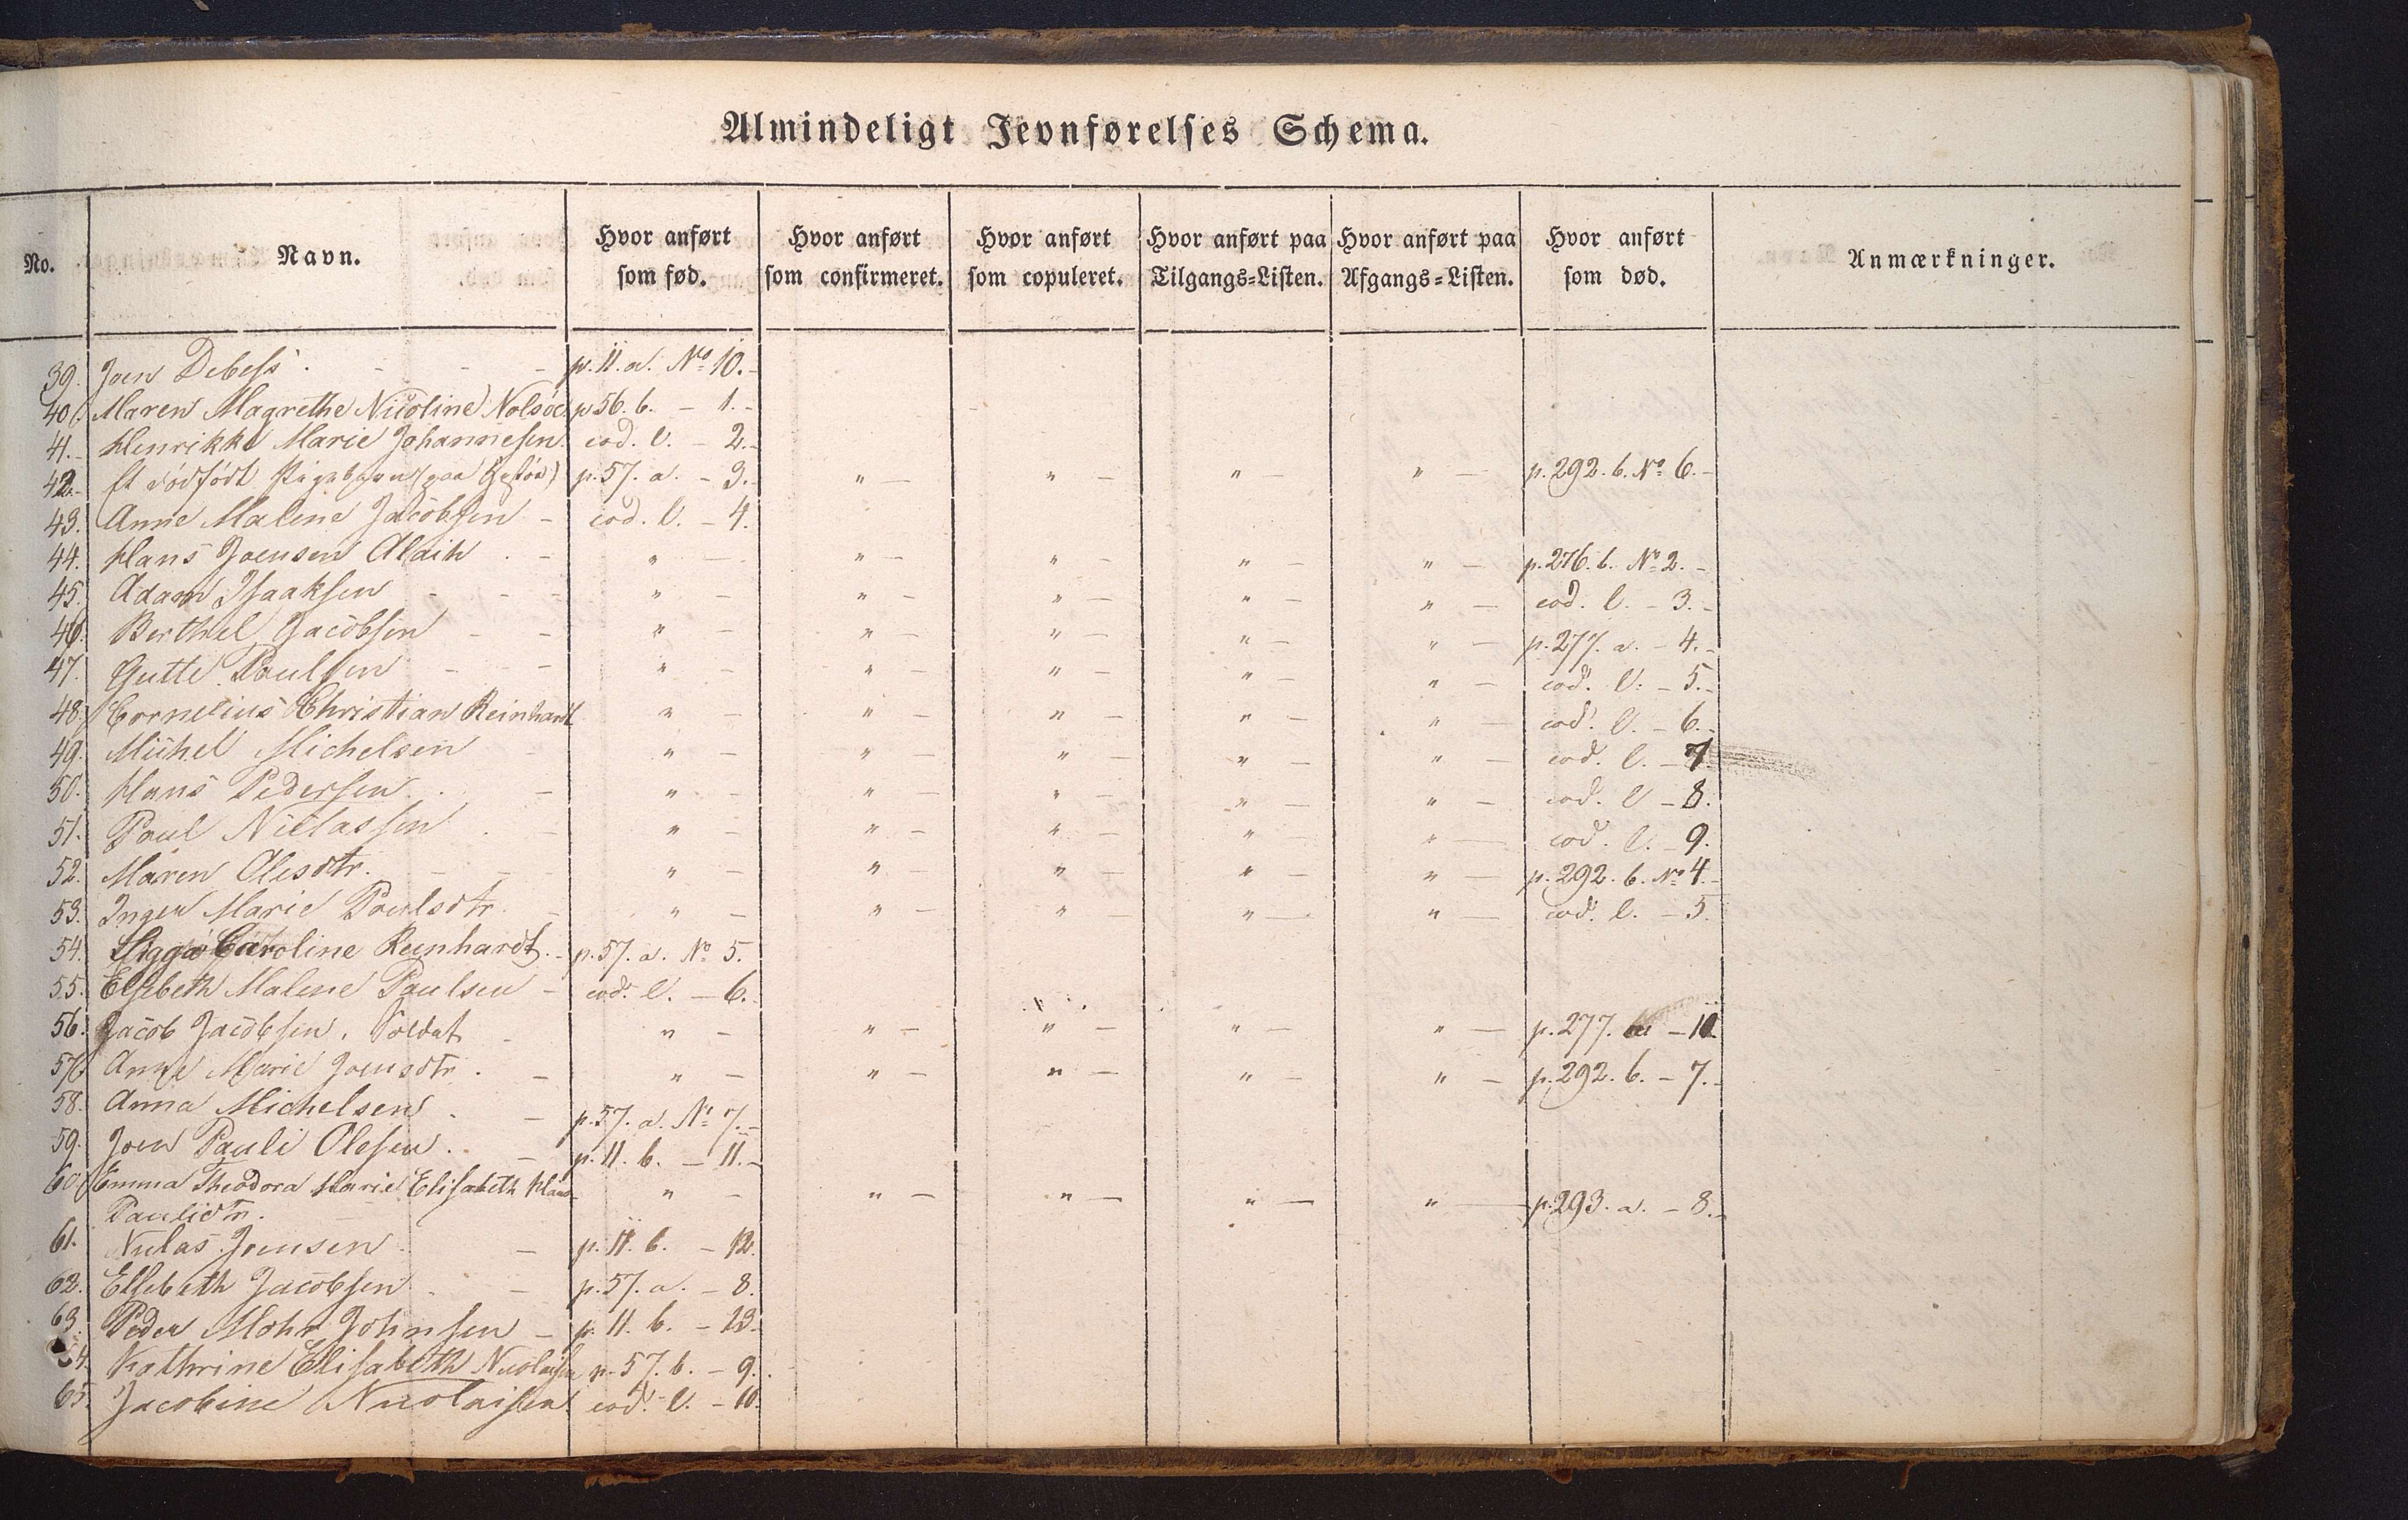 Almindeligt Jevnførelses Schema.
No. Navn. Hvor anført som fød. Hvor anført som confirmeret. Hvor anført som copuleret. Hvor anført paa Tilgangs-Listen. Hvor anført paa Afgangs-Listen. Hvor anført som død. Anmærkninger.
39. Joen Debess. - - - p. 11. a. No 10. -
40. Maren Magrethe Nicoline Nolsöe p 56. b. - 1. -
41. Henrikke Marie Johannesen. eod. l. - 2. -
42. Et dødfødt Pigebarn (paa) p. 57. a. - 3. - " - " - " - " - p. 292. b. No 6. -
43. Anne Malene Jacobsen - eod. l. - 4.
44. Hans Joensen - " - " - " - " - " - p. 276. b. No 2. -
45. Adam Isaaksen - - - " - " - " - " - " - eod. l. - 3. -
46. Berthel Jacobsen - - " - " - " - " - " - p. 277. a. - 4. -
47. Gutte Poulsen - - " - " - " - " - " - eod. l. - 5. -
48. Cornelius Christian Reinhardt " - " - " - " - " - eod. l. - 6. -
49. Michel Michelsen - " - " - " - " - " - eod. l. - 7
50. Hans Pedersen. - " - " - " - " - " - eod. l - 8.
51. Poul Niclassen - " - " - " - " - " - eod. l. - 9.
52. Maren Olesdtr. - - - " - " - " - " - " - p. 292. b. No 4. -
53. Inger Marie Poulsdtr - " - " - " - " - " - eod. l. - 5.
54. Sigga Caroline Reinhardt. - p. 57. a. No 5.
55. Elsebeth Malene Paulsen - eod. l. - 6. -
56. Jacob Jacobsen. Soldat - " - " - " - " - " - p. 277. - 10.
57. Anne Marie Joensdtr. - " - " - " - " - " - p. 292. b. - 7. -
58. Anna Michelsen. - p. 57. a. No 7. -
59. Joen Pauli Olesen. - p. 11. b. - 11. -
60. Emma Theodora Marie Elisabeth Hans " - " - " - " - " - p. 293. a. - 8. -
Paulidtr.
61. Niclas Joensen. - p. 11. b. - 12.
62. Elsebeth Jacobsen - - p. 57. a. - 8.
63. Peder Mohr Johnsen - p. 11. b. - 13. -
64. Kathrine Elisabeth Nicolaisen p. 57. b. - 9.
65. Jacobine Nicolaisen. eod. l. - 10.